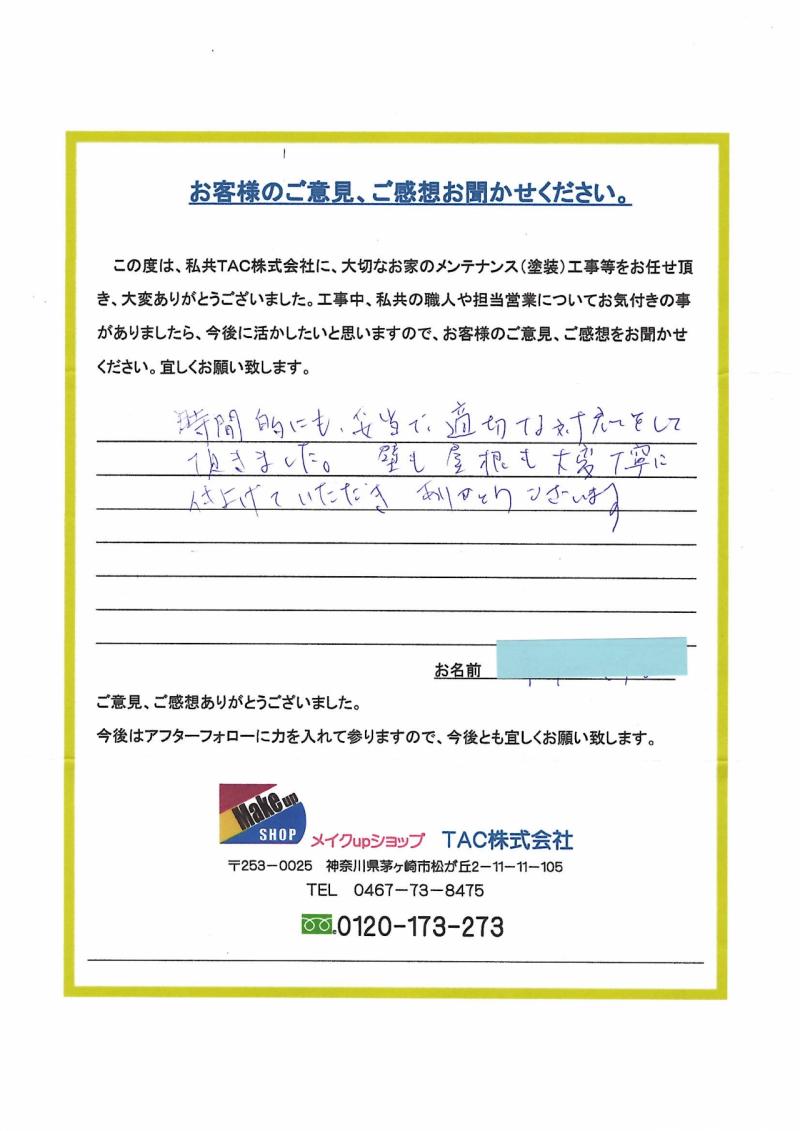 お客様のご意見、ご感想お聞かせください。
この度は、私共TAC株式会社に、大切なお家のメンテナンス(塗装)工事等をお任せ頂
き、大変ありがとうございました。工事中、私共の職人や担当営業についてお気付きの事
がありましたら、今後に活かしたいと思いますので、お客様のご意見、ご感想をお聞かせ
ください。宜しくお願い致します。
時間的にも、妥当で、適切な対応をして
頂きました。壁も屋根も大変丁寧に
仕上げていただき ありがとうございます
お名前
ご意見、ご感想ありがとうございました。
今後はアフターフォローに力を入れて参りますので、今後とも宜しくお願い致します。
Make up
SHOP
メイクupショップ TAC株式会社
〒253-0025 神奈川県茅ヶ崎市松が丘2-11-11-105
TEL 0467-73-8475
0120-173-273